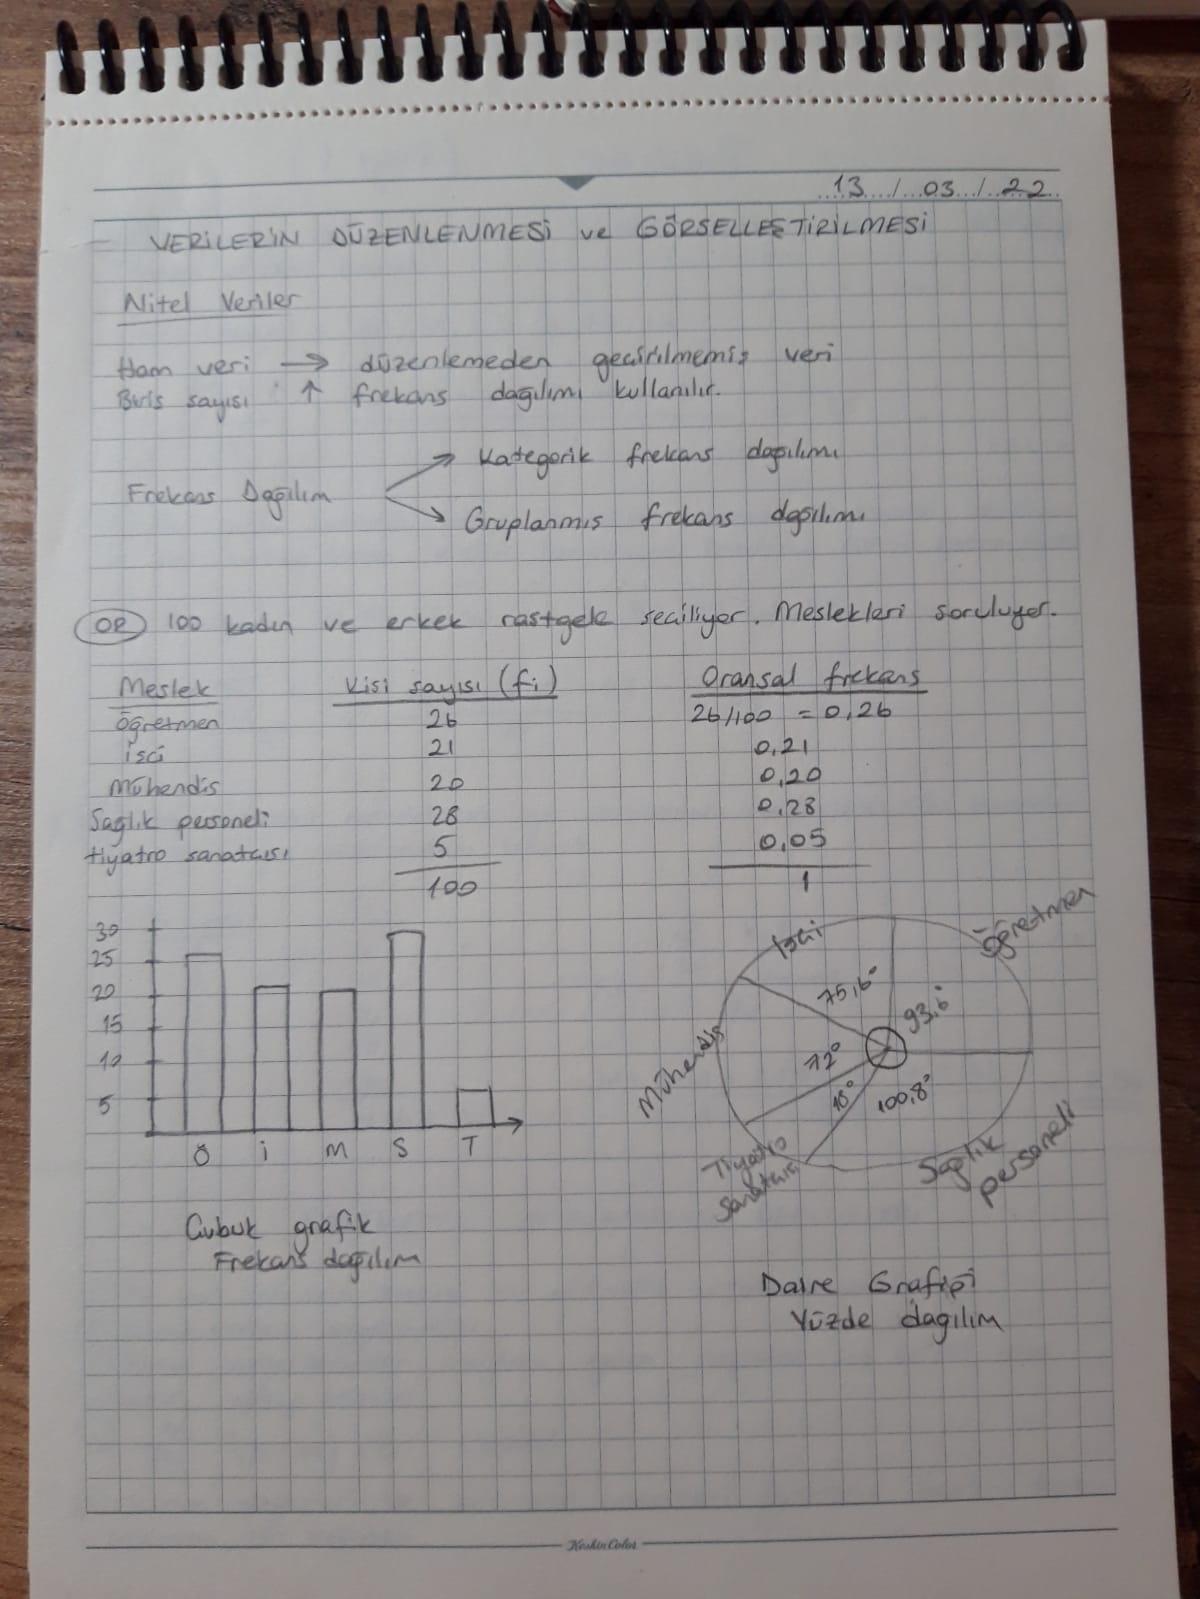 13 / 03 / 22
- VERİLERİN DÜZENLENMESİ ve GÖRSELLEŞTİRİLMESİ
Nitel Veriler
Ham veri → düzenlemeden geçirilmemiş veri
Biris sayısı ↑ frekans dağılımı kullanılır.
Frekans Dağılım
Kategorik frekans dağılımı
Gruplanmış frekans dağılımı
ÖR 100 kadın ve erkek rastgele seçiliyor. Meslekleri soruluyor.
Meslek Kişi sayısı (fi) Oransal frekans
Öğretmen 26 26/100 = 0,26
işçi 21 0,21
Mühendis 20 0,20
Sağlık personeli 28 0,28
tiyatro sanatçısı 5 0,05
100 1
30
25
20
15
10
5
Ö İ M S T
Çubuk grafik
Frekans dağılım
Öğretmen
İşçi
75,6°
93,6°
Mühendis
72°
18°
100,8°
Tiyatro
sanatçısı
Sağlık
personeli
Daire Grafiği
Yüzde dağılım
KeskinColor